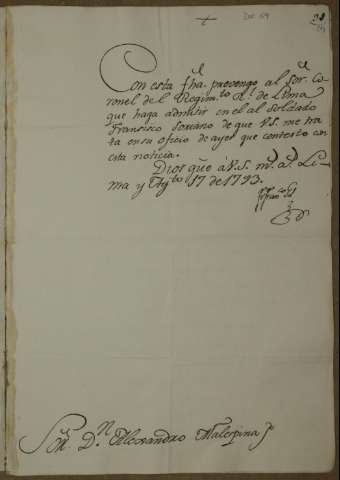 +
Con esta fha. prevengo al Sor. Co-
ronel del Regimto. Rl. de Lima
que haga admitir en el al soldado
Francisco Soriano de que V.S. me tra
ta en su oficio de ayer que contexto con
esta noticia.
Dios gue. a V.S. ms. as. Li-
ma y Agto. 17 de 1793.
Sor. Dn. Alexandro Malespina